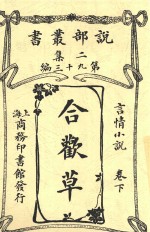 說部叢書
二集第九十三編
言情小說 卷下
合歡草
上海商務印書館發行